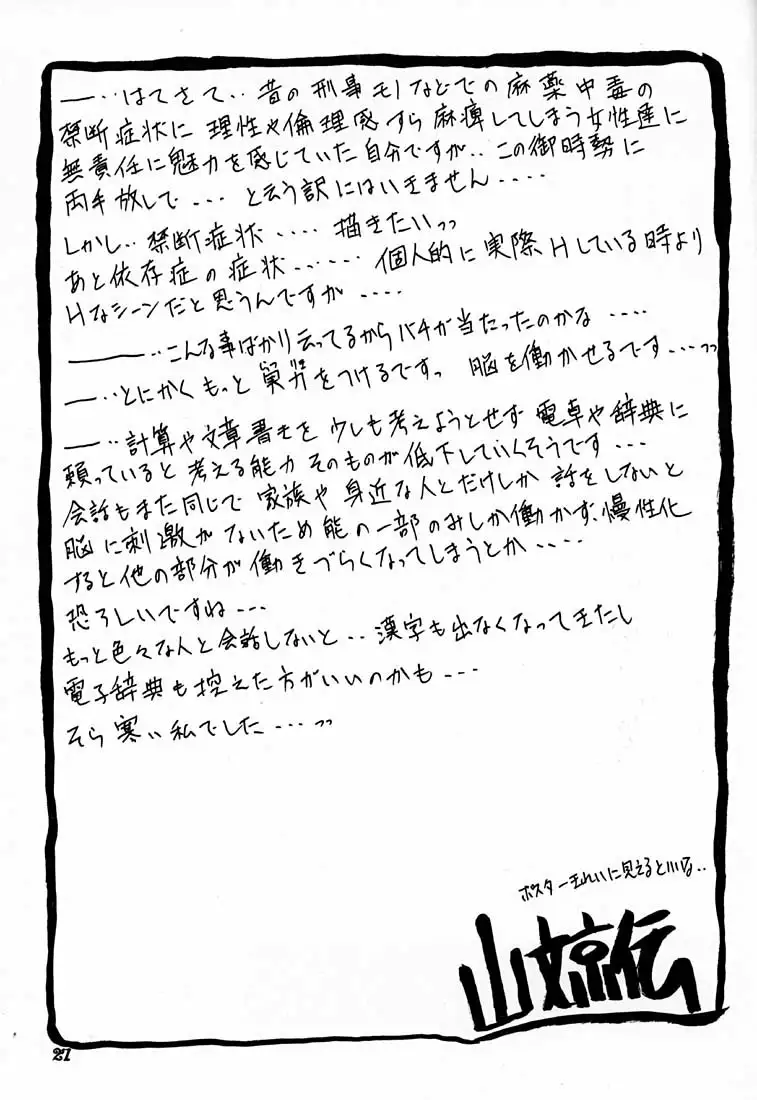 ――‥はてさて‥昔の刑事モノなどでの麻薬中毒の
禁断症状に理性や倫理感すら麻痺してしまう女性達に
無責任に魅力を感じていた自分ですが‥この御時勢に
両手放しで‥‥と云う訳にはいきません‥‥
しかし‥禁断症状‥‥描きたいっっ
あと依存症の症状‥‥‥個人的に実際Hしている時より
Hなシーンだと思うんですが‥‥
―――‥こんな事ばかり云ってるからバチが当たったのかな‥‥
――‥とにかくもっとをつけるですっ 脳を働かせるです‥‥っっ
――‥計算や文章書きを少しも考えようとせず電卓や辞典に
頼っていると考える能力そのものが低下していくそうです‥‥
会話もまた同じで家族や身近な人とだけしか話をしないと
脳に刺激がないため能の一部のみしか働かず、慢性化
すると他の部分が働きづらくなってしまうとか‥‥
恐ろしいですね‥‥
もっと色々な人と会話しないと‥漢字も出なくなってきたし
電子辞典も控えた方がいいのかも‥‥
そら寒い私でした‥‥っっ
ポスターきれいに見えるといいな‥
山文京伝
27